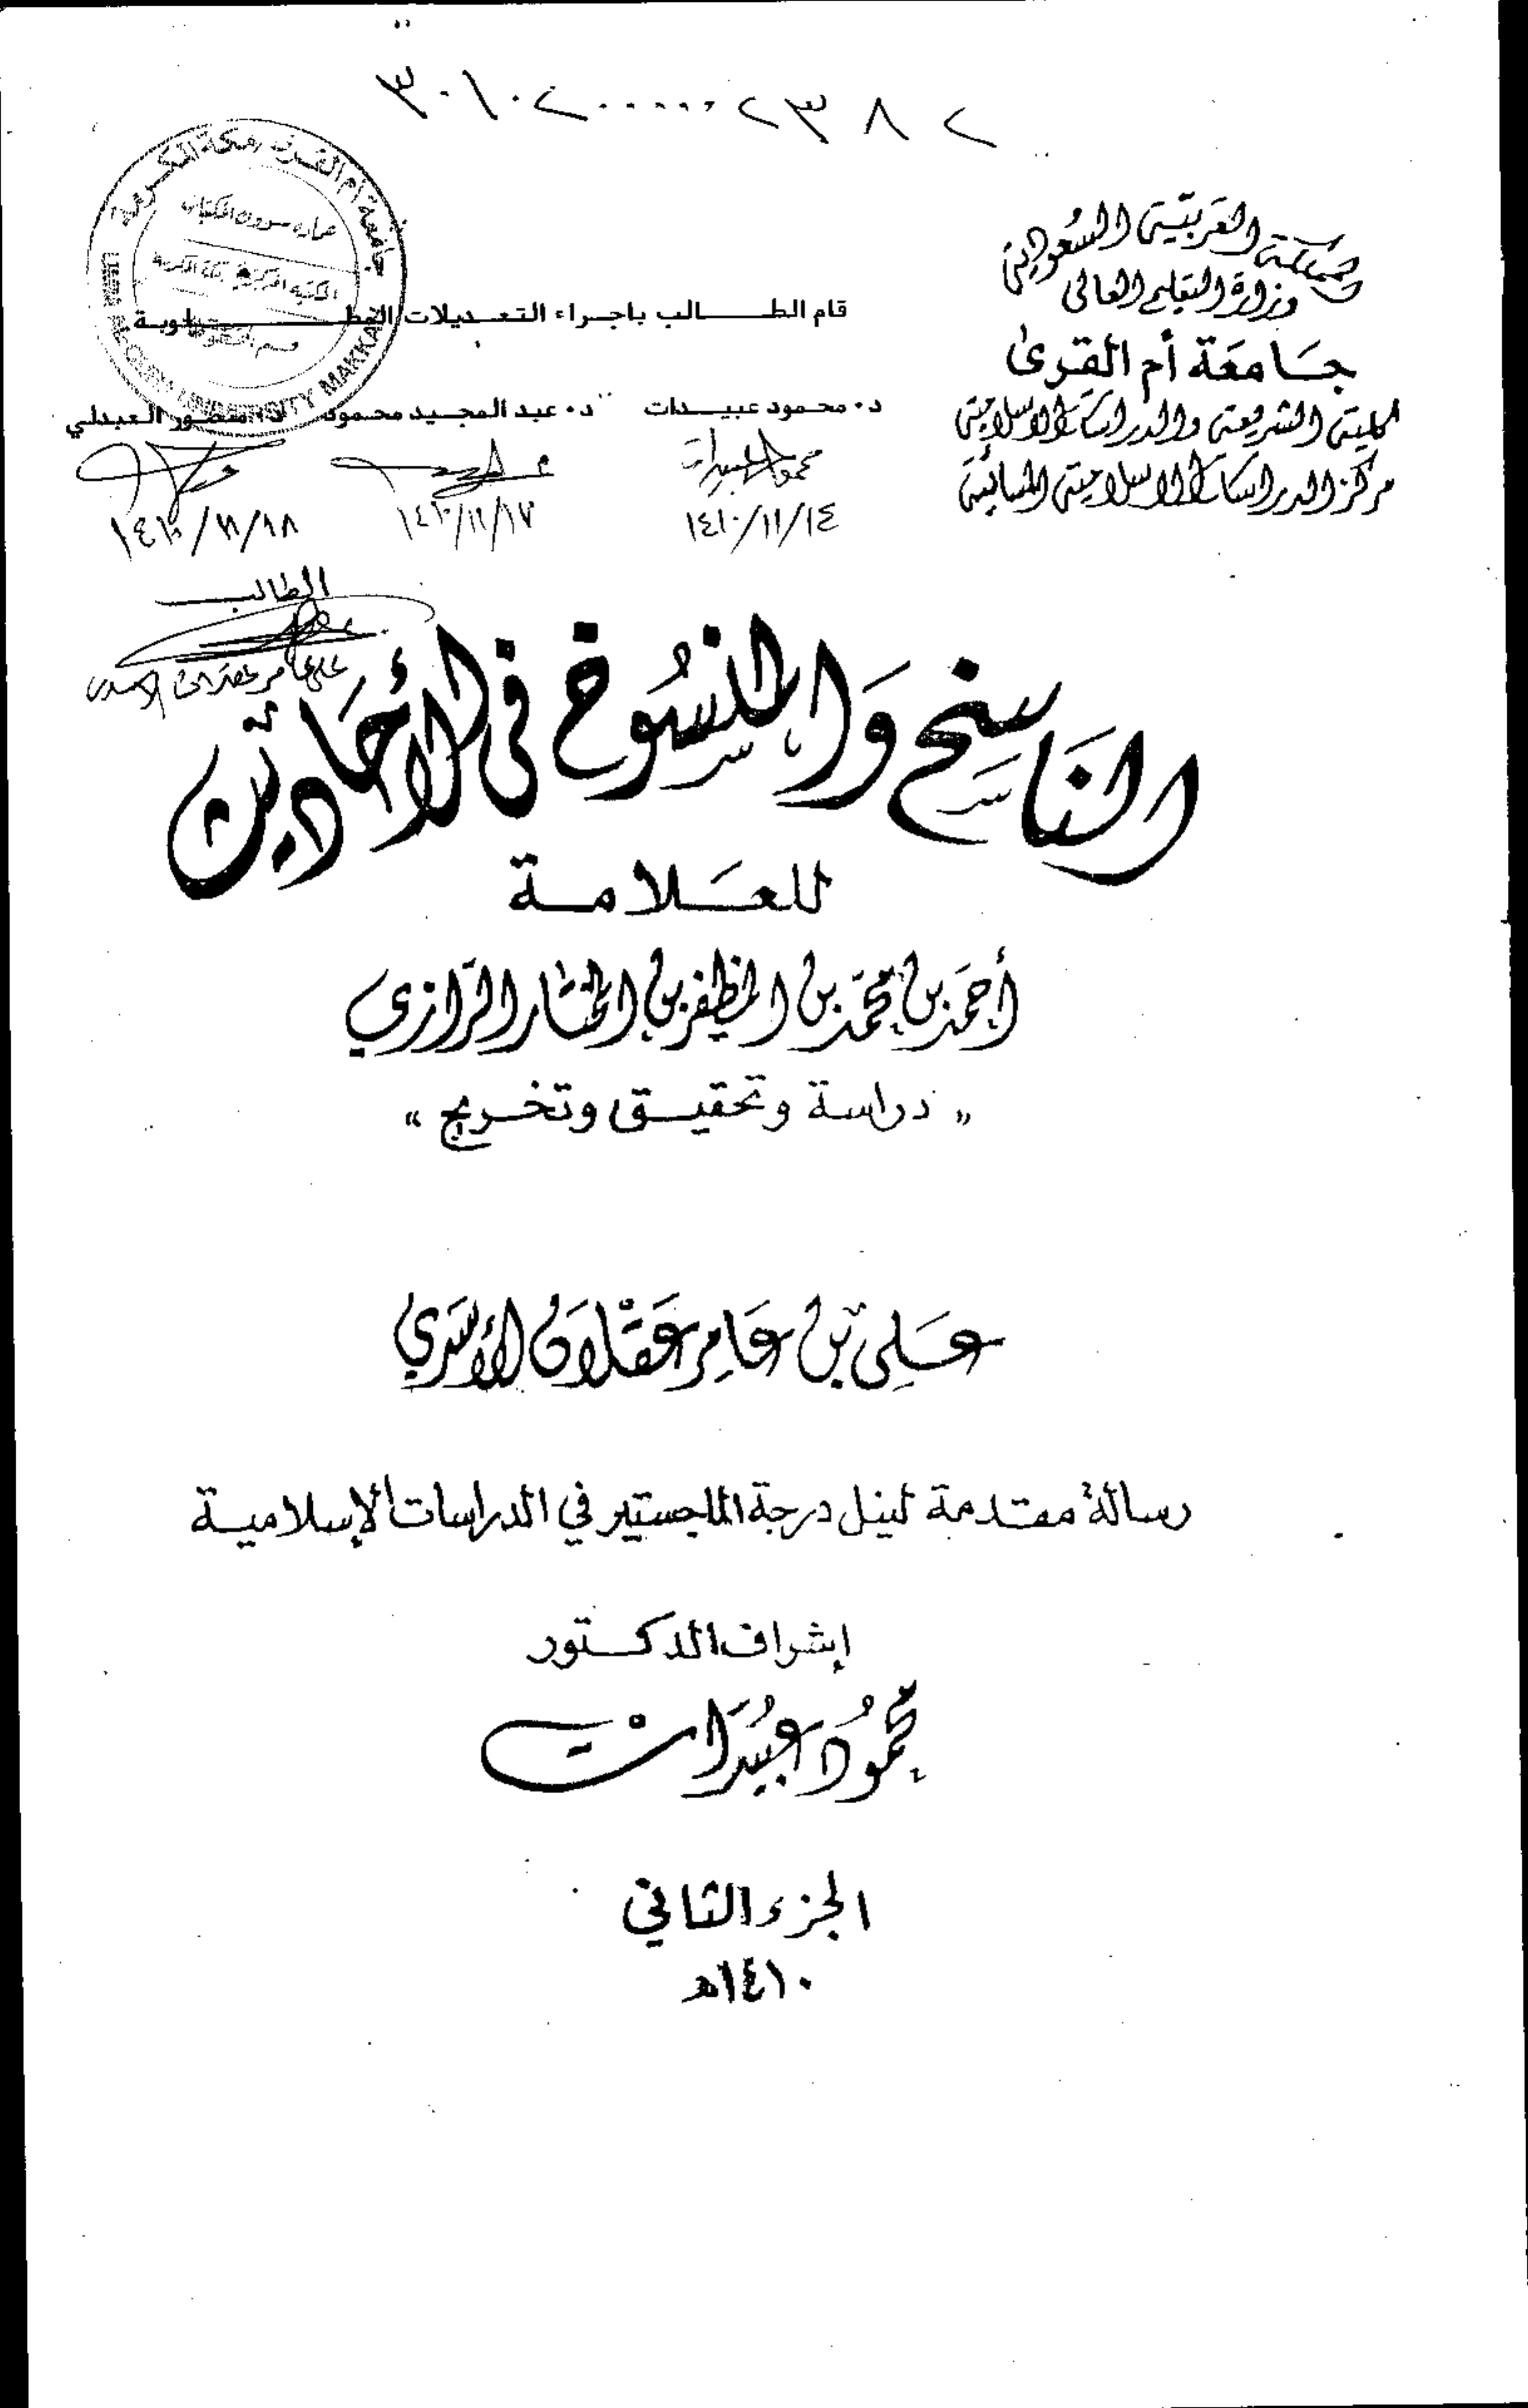 ٣٠١٠٢٠٠٠٠٠٢٣٨٢
المملكة العربية السعودية
وزارة التعليم العالي
جَامعَة أم القرى
كلية الشريعة والدراسات الاسلامية
مركز الدراسات الاسلامية المسائية
جامعة أم القرى مكة المكرمة
UNIVERSITY MAKKA
قام الطـــالب باجراء التعديلات المطـــلوبة
د. محمود عبيدات د. عبد المجيد محمود د. منصور العبدلي
١٤١٠/١١/١٤ ١٤١٠/١١/١٧ ١٤١٠/١١/١٨
الطالب
النَاسِخ وَالمنسُوخ في الأحَاديث
للعَلامة
أحمَد بن محمَّد بن المظفر بن المختار الرازي
" دراسة وتحقيق وتخريج "
عَلي بن عَامِر عَقْلَان الأسَدي
رسالة مقدمة لنيل درجة الماجستير في الدراسات الإسلامية
إشراف الدكتور
محمُود عُبَيْدَات
الجزء الثاني
١٤١٠هـ